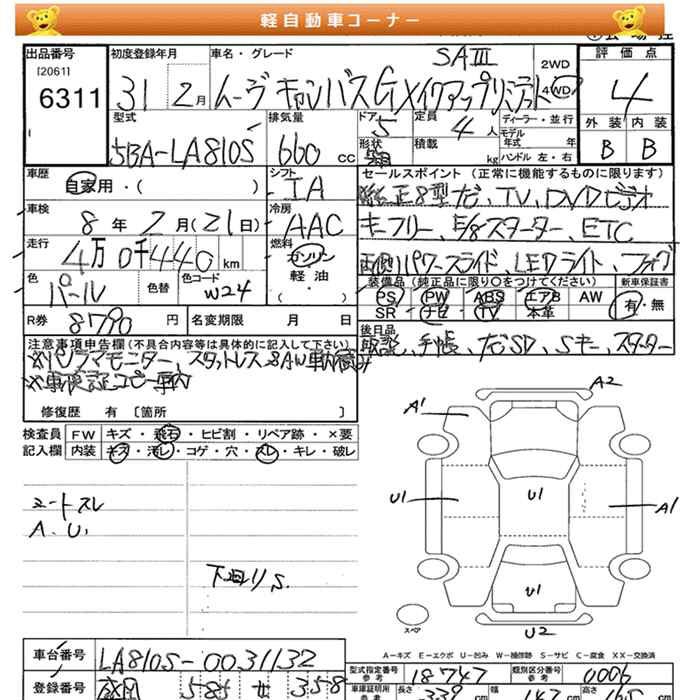 軽自動車コーナー
出品番号 初度登録年月 車名・グレード SAⅢ 2WD 4WD 評価点
[2061]
6311 31 2月 ムーヴ キャンバスGメイクアップリミテッド 4
型式 排気量 ドア 5 定員 4人 ディーラー・並行 外装 内装
モデル年式 年式
5BA-LA810S 660 cc 形状 積載 kg ハンドル 左・右 B B
車歴 シフト セールスポイント(正常に機能するものに限ります)
自家用・( ) IA 純正8型ナビ、TV、DVDビデオ
車検 冷房
8年2月(21日) AAC キーフリー、E/Gスターター、ETC
走行 燃料
4万0千440km ガソリン 両側パワースライド、LEDライト、フォグ
色 色替 色コード 軽油 装備品(純正品に限り○をつけてください) 新車保証書
パール W24 ・( ) PS PW ABS エアB AW 有・無
SR ナビ TV 本革
R券 8790円 名変期限 月 日 後日品
注意事項申告欄(不具合内容等は具体的に記入して下さい) 取説、手帳、ナビSD、Sキー、スターター
※パノラマモニター、スタットレスAW車内積み
※車検証コピー車内
修復歴 有 [箇所 ]
検査員 FW キズ・飛石・ヒビ割・リペア跡・×要
記入欄 内装 キズ・汚レ・コゲ・穴・スレ・キレ・破レ
A2
A1
U1 U1 A1
シートスレ
A、U、
下廻りS
U1
U2
スペア
A-キズ E-エクボ U-凹み W-補修跡 S-サビ C-腐食 XX-交換済
車台番号 LA810S-0031132
型式指定番号 参考 18747 類別区分番号 参考 0006
登録番号 盛岡 585 せ 358
車庫証明用 参考 長さ 339 cm 幅 147 cm 高さ 165 cm